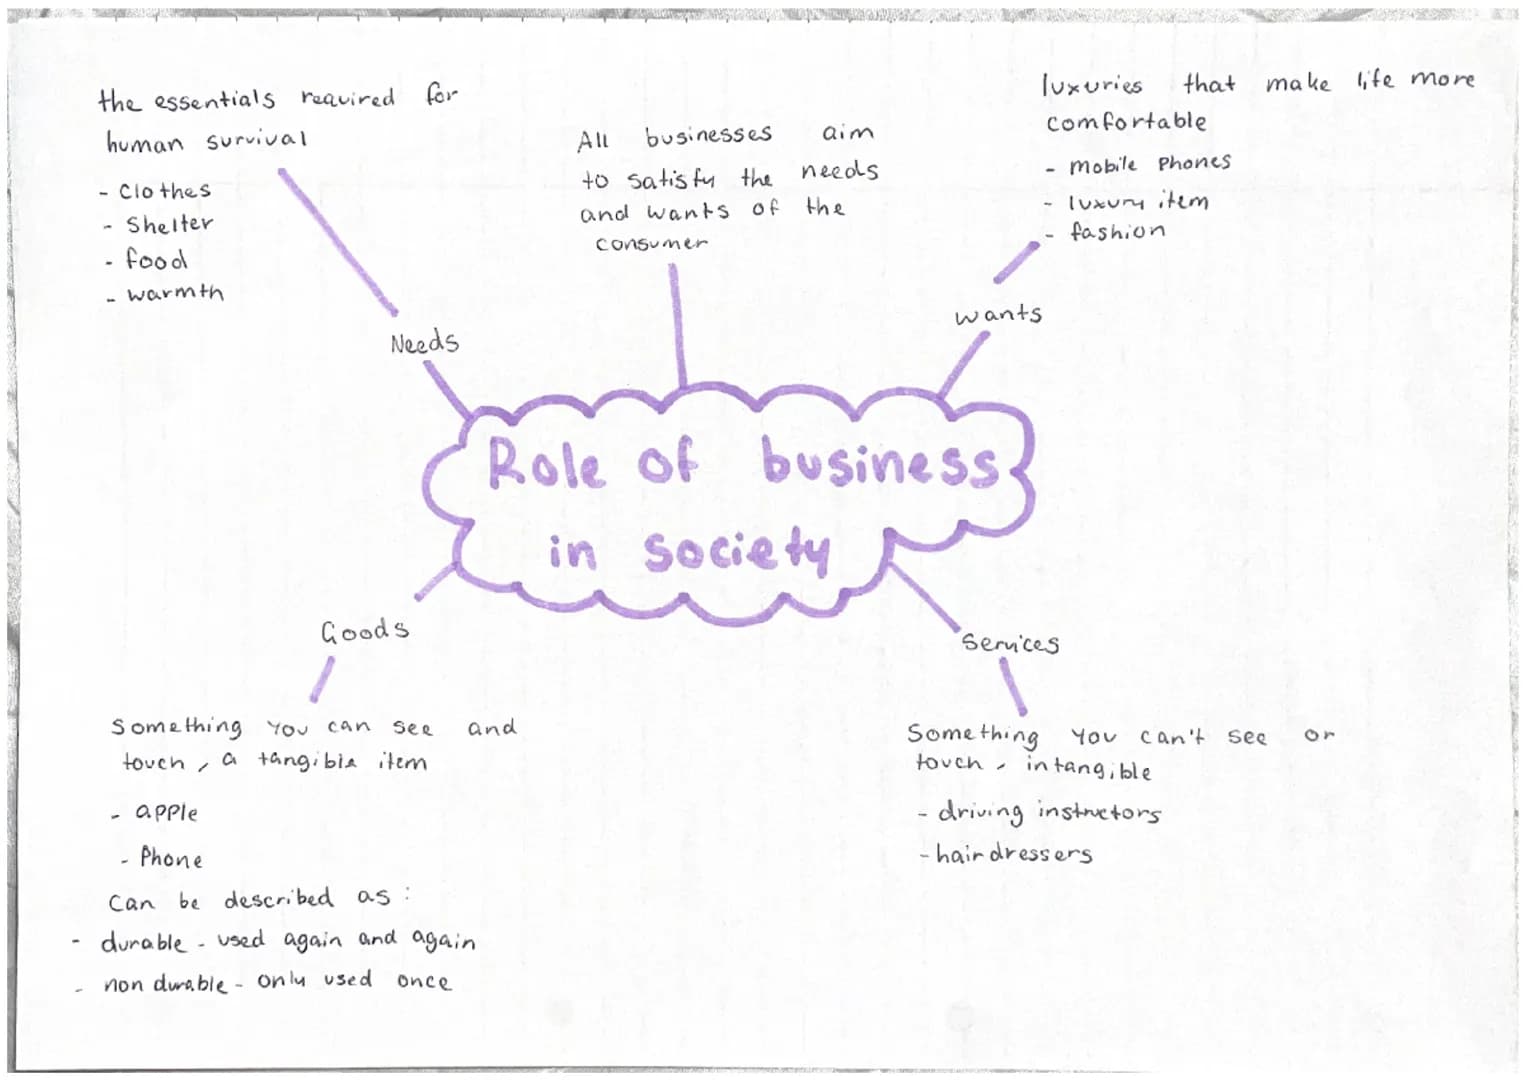 the essentials required for
human survival
- Clothes
- Shelter
- food
- warmth
Needs
All businesses aim
to satisfy the needs
and wants of the
consumer
luxuries that make life more
comfortable
- mobile phones
- luxury item
- fashion
wants
Role of business
in society
Goods
Something you can see and
touch, a tangible item
- apple
- Phone
Can be described as:
- durable - used again and again
- non durable - only used once
Services
Something you can't see or
touch, intangible
- driving instructors
- hairdressers